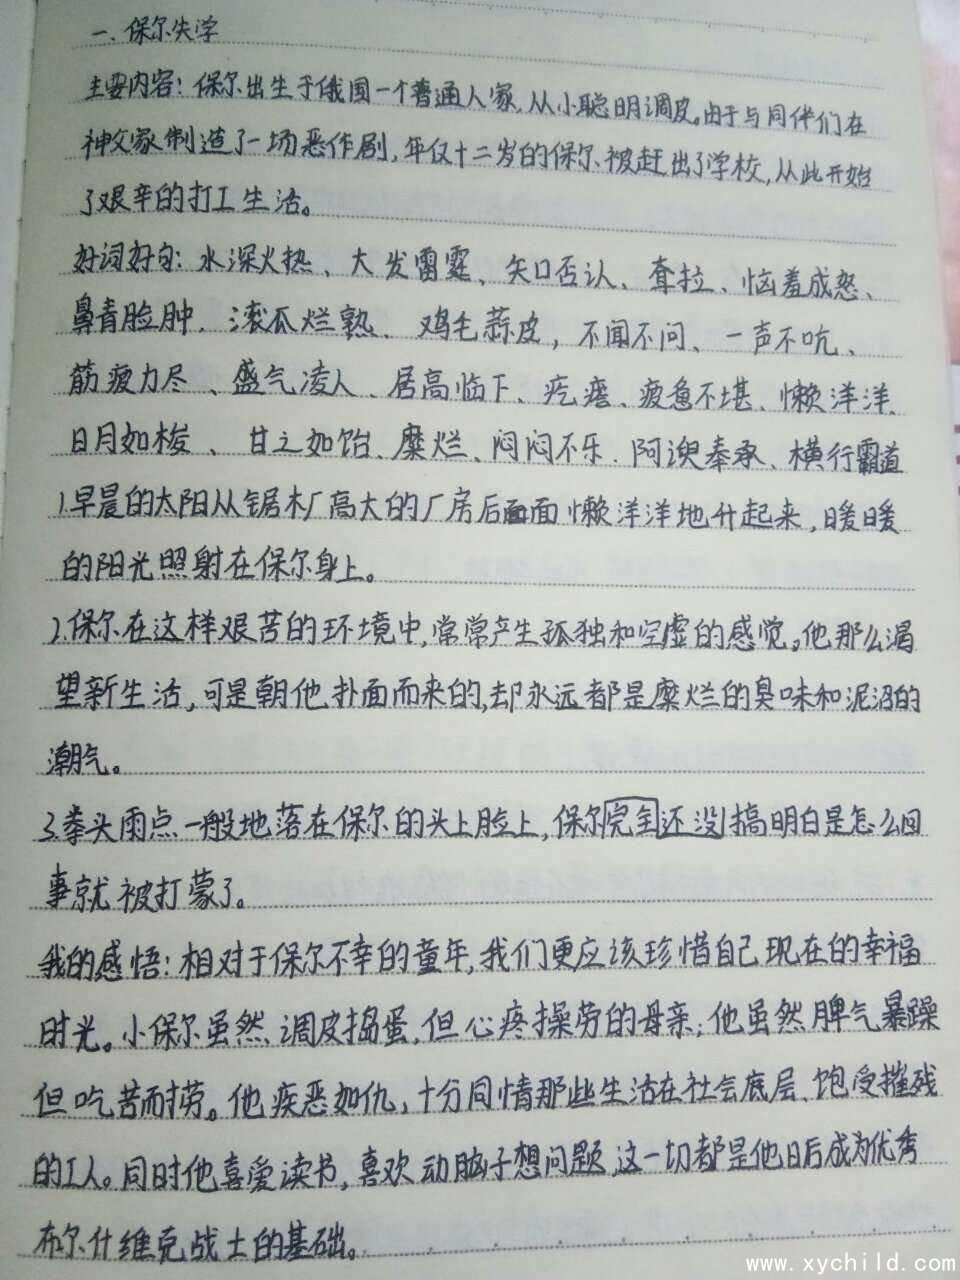 一、保尔失学
主要内容：保尔出生于俄国一个普通人家，从小聪明调皮。由于与同伴们在
神父家制造了一场恶作剧，年仅十二岁的保尔被赶出了学校，从此开始
了艰辛的打工生活。
好词好句：水深火热、大发雷霆、矢口否认、耷拉、恼羞成怒、
鼻青脸肿、滚瓜烂熟、鸡毛蒜皮，不闻不问、一声不吭、
筋疲力尽、盛气凌人、居高临下、疙瘩、疲惫不堪、懒洋洋、
日月如梭、甘之如饴、糜烂、闷闷不乐、阿谀奉承、横行霸道
1.早晨的太阳从锯木厂高大的厂房后面懒洋洋地升起来，暖暖
的阳光照射在保尔身上。
2.保尔在这样艰苦的环境中，常常产生孤独和空虚的感觉。他那么渴
望新生活，可是朝他扑面而来的，却永远都是糜烂的臭味和泥沼的
潮气。
3.拳头雨点一般地落在保尔的头上脸上，保尔完全还没搞明白是怎么回
事就被打蒙了。
我的感悟：相对于保尔不幸的童年，我们更应该珍惜自己现在的幸福
时光。小保尔虽然调皮捣蛋，但心疼操劳的母亲；他虽然脾气暴躁
但吃苦耐劳。他疾恶如仇，十分同情那些生活在社会底层、饱受摧残
的工人。同时他喜爱读书，喜欢动脑子想问题，这一切都是他日后成为优秀
布尔什维克战士的基础。
www.xychild.com